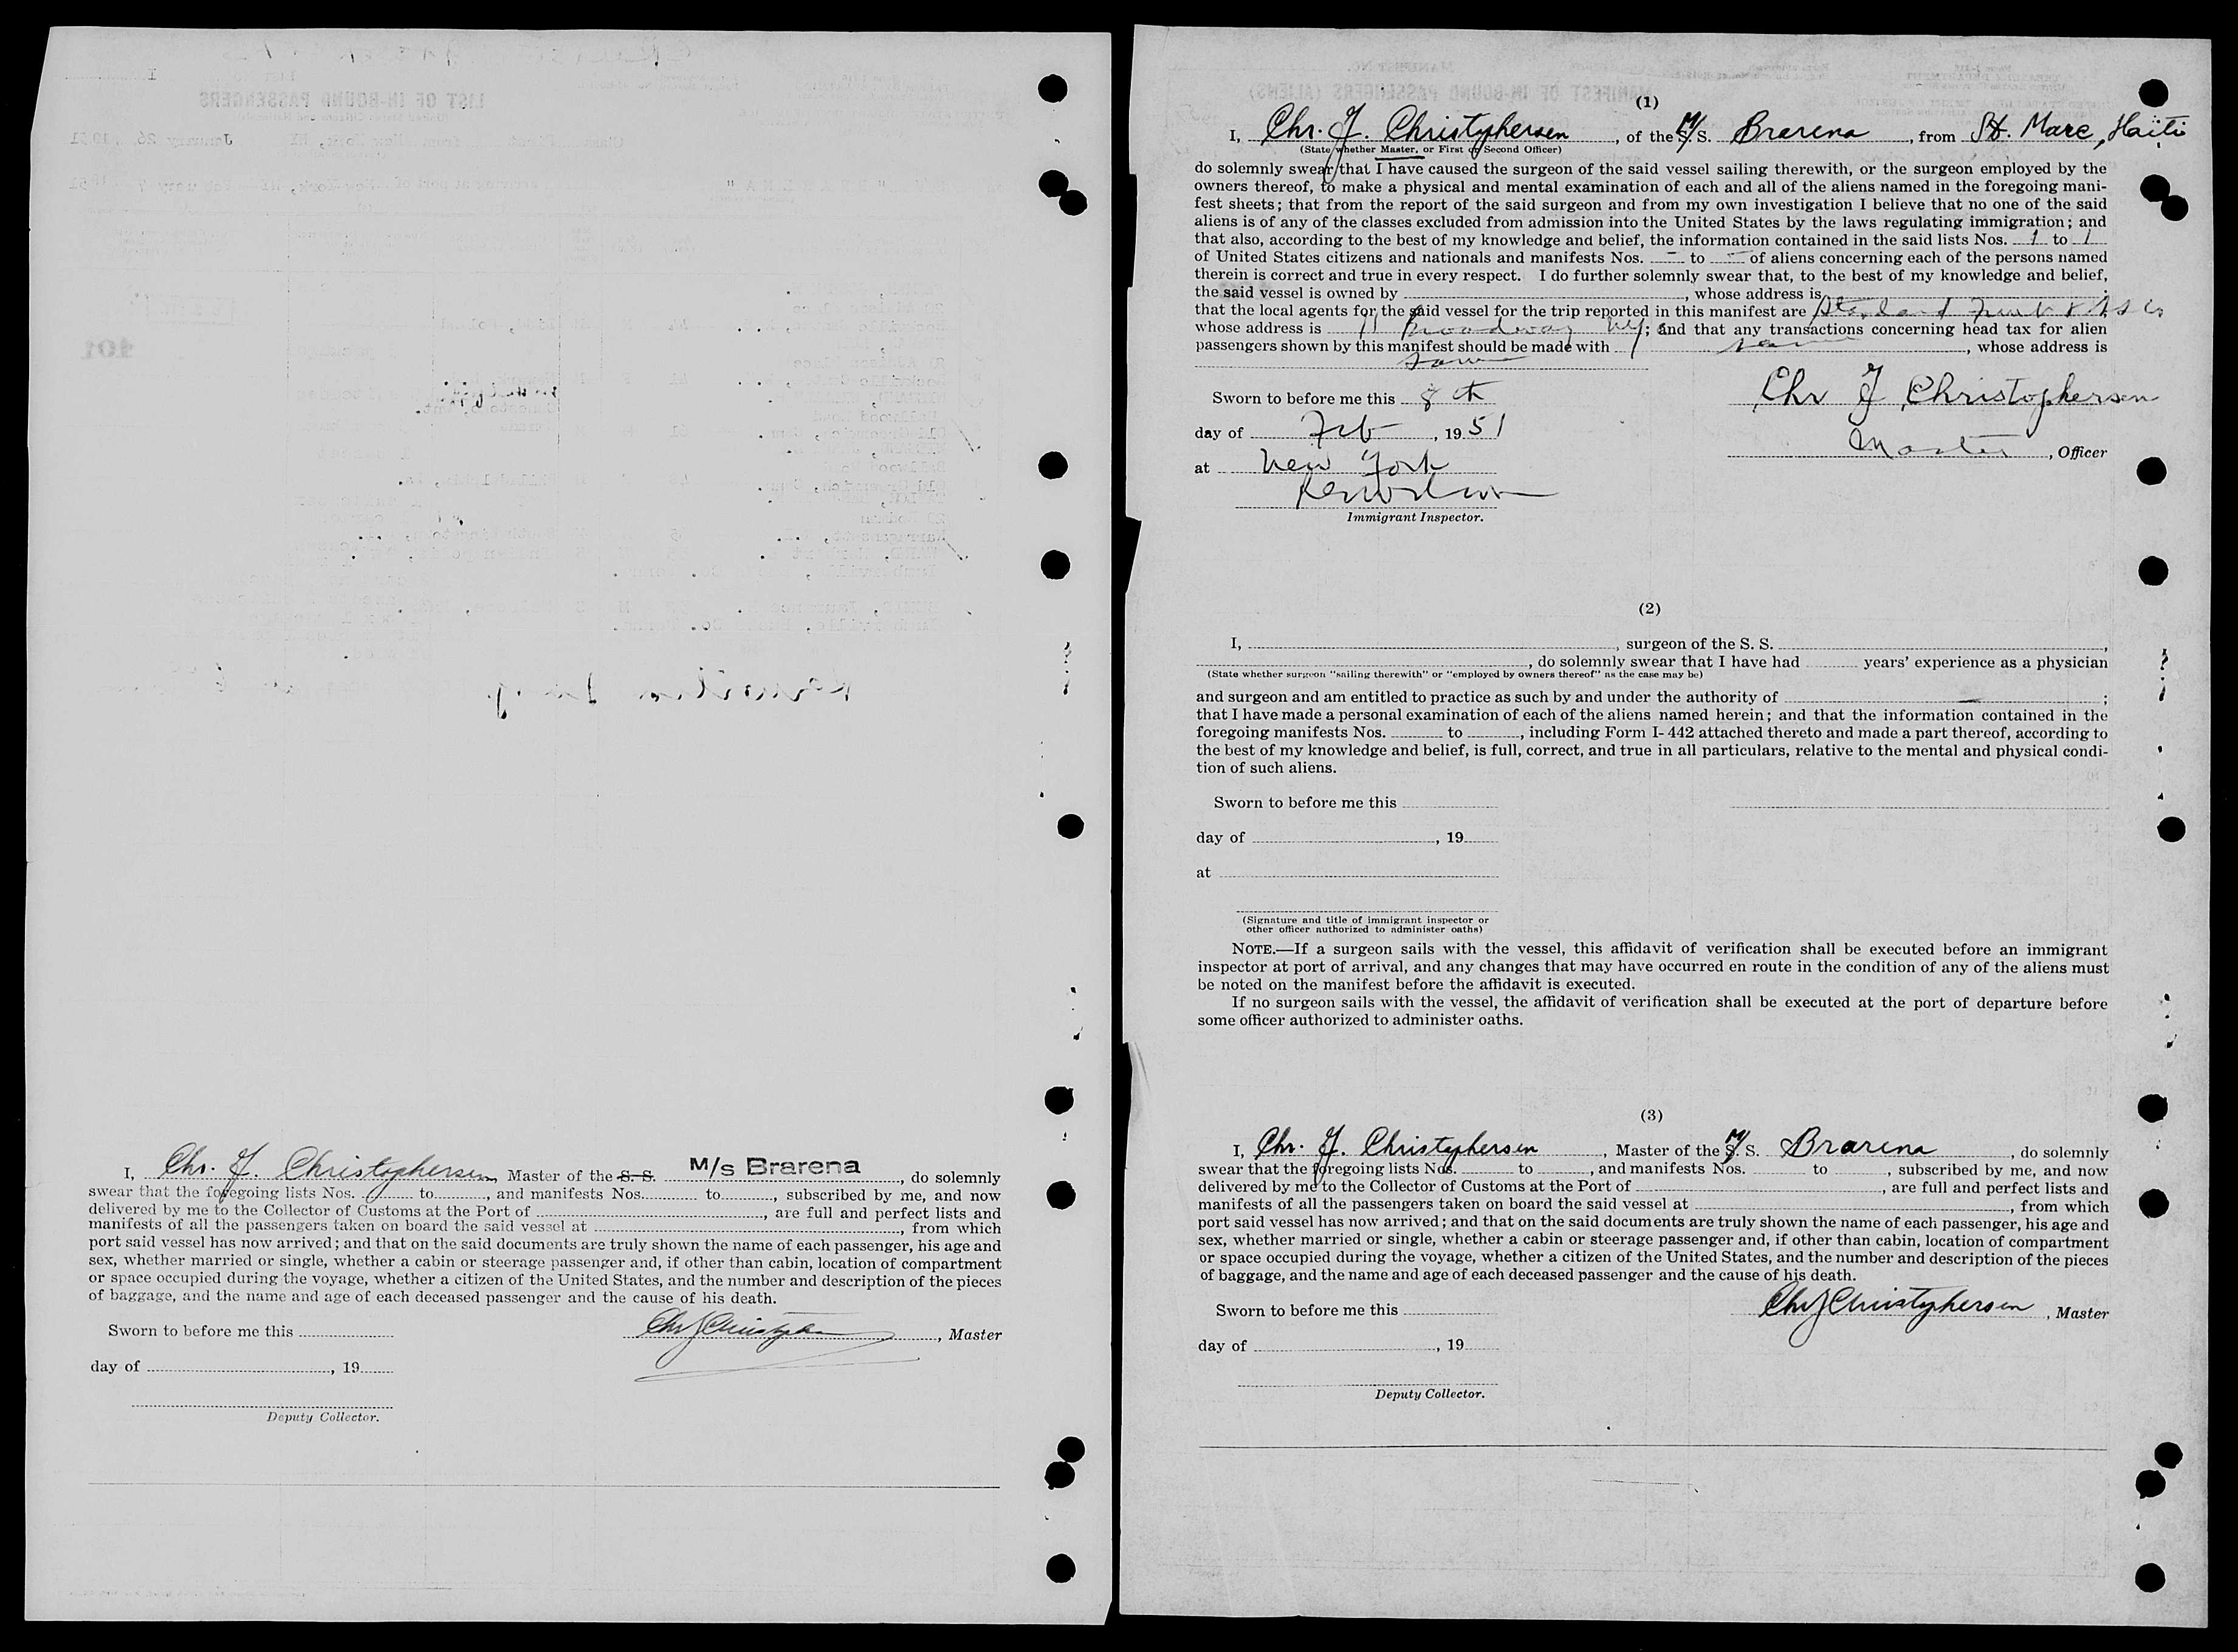 I, Chr. J. Christophersen, Master of the S. S. M/s Brarena, do solemnly
swear that the foregoing lists Nos. to, and manifests Nos. to, subscribed by me, and now
delivered by me to the Collector of Customs at the Port of, are full and perfect lists and
manifests of all the passengers taken on board the said vessel at, from which
port said vessel has now arrived; and that on the said documents are truly shown the name of each passenger, his age and
sex, whether married or single, whether a cabin or steerage passenger and, if other than cabin, location of compartment
or space occupied during the voyage, whether a citizen of the United States, and the number and description of the pieces
of baggage, and the name and age of each deceased passenger and the cause of his death.
Sworn to before me this
Chr J Christophersen, Master
day of, 19
Deputy Collector.
(1)
I, Chr. J. Christophersen, of the M/S. Brarena, from St. Marc, Haiti
(State whether Master, or First or Second Officer)
do solemnly swear that I have caused the surgeon of the said vessel sailing therewith, or the surgeon employed by the
owners thereof, to make a physical and mental examination of each and all of the aliens named in the foregoing mani-
fest sheets; that from the report of the said surgeon and from my own investigation I believe that no one of the said
aliens is of any of the classes excluded from admission into the United States by the laws regulating immigration; and
that also, according to the best of my knowledge and belief, the information contained in the said lists Nos. 1 to 1
of United States citizens and nationals and manifests Nos. - to - of aliens concerning each of the persons named
therein is correct and true in every respect. I do further solemnly swear that, to the best of my knowledge and belief,
the said vessel is owned by, whose address is;
that the local agents for the said vessel for the trip reported in this manifest are Standard Fruit & SS Co
whose address is 11 Broadway NY; and that any transactions concerning head tax for alien
passengers shown by this manifest should be made with same, whose address is
same
Sworn to before me this 8th
Chr J Christophersen
day of Feb, 1951
Master, Officer
at New York
Immigrant Inspector.
(2)
I, , surgeon of the S. S. ,
, do solemnly swear that I have had years' experience as a physician
(State whether surgeon "sailing therewith" or "employed by owners thereof" as the case may be)
and surgeon and am entitled to practice as such by and under the authority of ;
that I have made a personal examination of each of the aliens named herein; and that the information contained in the
foregoing manifests Nos. to, including Form I-442 attached thereto and made a part thereof, according to
the best of my knowledge and belief, is full, correct, and true in all particulars, relative to the mental and physical condi-
tion of such aliens.
Sworn to before me this
day of, 19
at
(Signature and title of immigrant inspector or
other officer authorized to administer oaths)
NOTE.—If a surgeon sails with the vessel, this affidavit of verification shall be executed before an immigrant
inspector at port of arrival, and any changes that may have occurred en route in the condition of any of the aliens must
be noted on the manifest before the affidavit is executed.
If no surgeon sails with the vessel, the affidavit of verification shall be executed at the port of departure before
some officer authorized to administer oaths.
(3)
I, Chr. J. Christophersen, Master of the M/S. Brarena, do solemnly
swear that the foregoing lists Nos. to, and manifests Nos. to, subscribed by me, and now
delivered by me to the Collector of Customs at the Port of, are full and perfect lists and
manifests of all the passengers taken on board the said vessel at, from which
port said vessel has now arrived; and that on the said documents are truly shown the name of each passenger, his age and
sex, whether married or single, whether a cabin or steerage passenger and, if other than cabin, location of compartment
or space occupied during the voyage, whether a citizen of the United States, and the number and description of the pieces
of baggage, and the name and age of each deceased passenger and the cause of his death.
Sworn to before me this
Chr J Christophersen, Master
day of, 19
Deputy Collector.